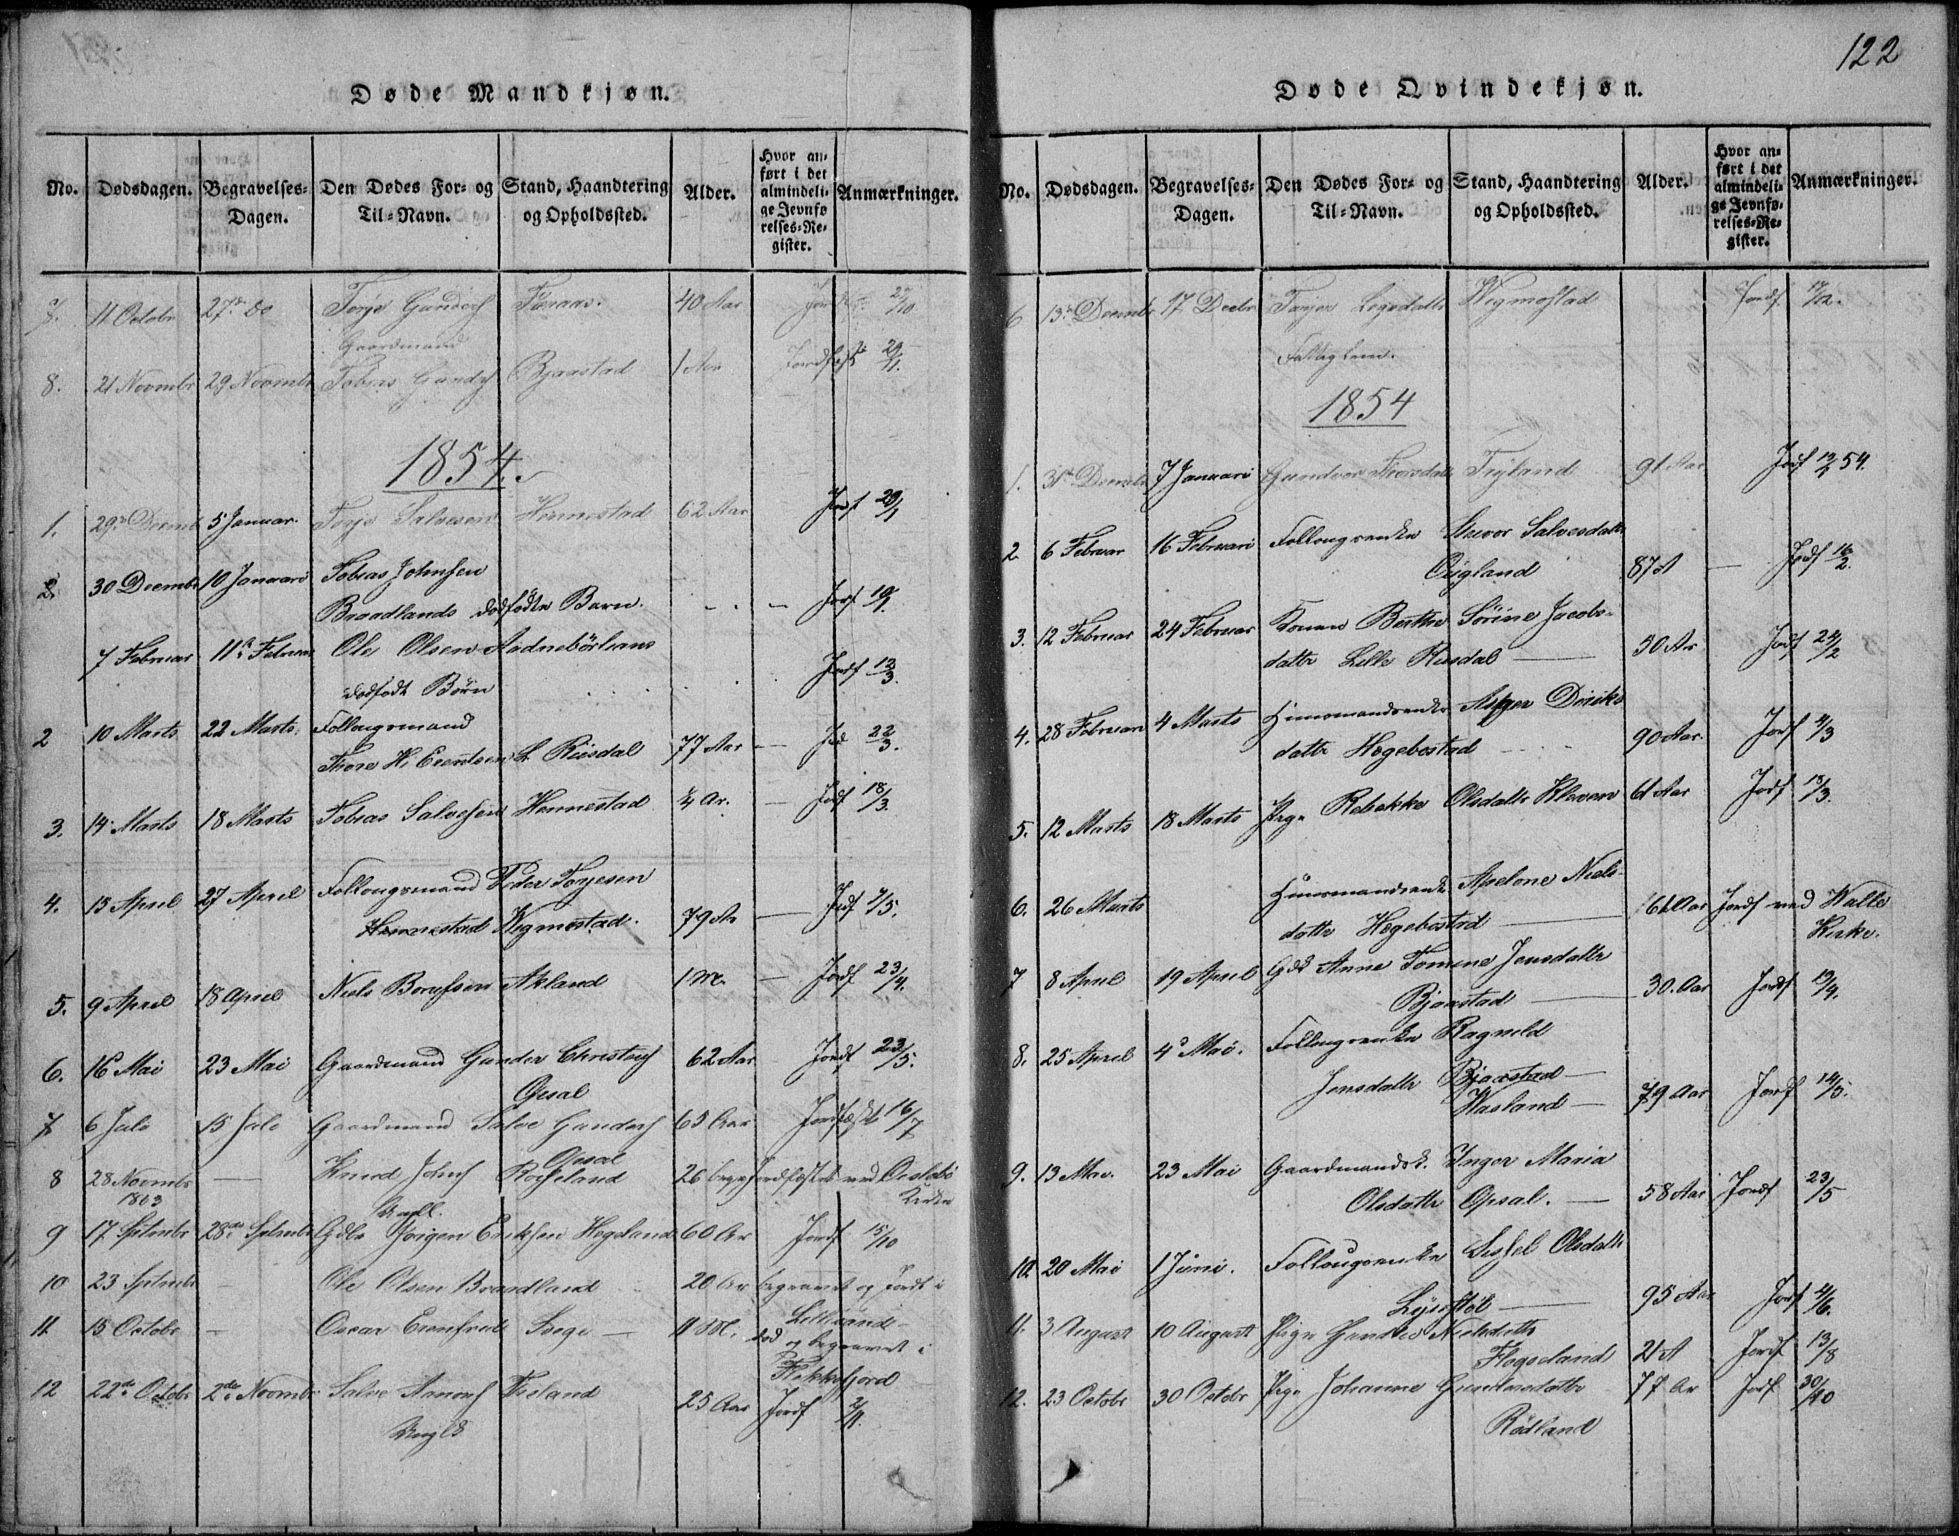 122
Døde Mandkjøn.
No. Dødsdagen. Begravelses-Dagen. Den Dødes For- og Til-Navn. Stand, Haandtering og Opholdssted. Alder. Hvor anført i det almindelige Jevnførelses-Register. Anmærkninger.
7. 11 Octobr 27de do Torje Gundersf 40 Aar 27/10
Gaardmand
8. 21 Novmbr 29 Novmbr Tobias Gundsf Bjaastad 1 Aar Jordfest 29/11.
1854.
1. 29de Decemb 5 Januar. Torje Salvesen Hennestad 62 Aar Jordf 29/1
2. 30 Decmbr 10 Januari Tobias Johnsen
Braadlands dødfødte Barn. Jordf 19/1.
7 Februar 11te Februar Ole Olsen
dødfødt Børn Jordf 12/3.
2 10 Marts 22 Marts. Follougsmand
Thore H. Erentsen L. Riisdal 77 Aar 22/3.
3. 14 Marts 18 Marts Tobias Salvesen Hennestad 4 Ar. Jordf 18/3.
4. 15 April 27 April Follougsmand Peder Torjesen
Hennestad Wigmostad. 79 Ar Jordf 7/5.
5. 9 April 18 April Niels Akland 1 M. Jordf 23/4.
6. 16 Mai 23 Mai Gaardmand Gunder Christensf 62 Aar Jordf 23/5.
Opsal
7 6 Juli 15 Juli Gaardmand Salve Gundersf 63 Aar Jordfæstet 16/7
Opsal
8 28 Novmbr Knud Johnsf 26 Jordfæstet ved Oislebø
1863 Kirke
9 17 Septmbr 28de Septmbr Gdbr Jørgen Eriksen Hegeland 60 Ar Jordf 15/10
10 23 Septmbr Ole Olsen Brandland 20 Ar begravet og Jordf i
Lillesand
11 15 Octobr Oscar Svege 11 M. død og begravet i
Flekkefjord
12 22de Octobr 2den Novmbr Salve 25 Aar Jordf 2/11.
Døde Qvindekjøn.
No. Dødsdagen. Begravelses-Dagen. Den Dødes For- og Til-Navn. Stand, Haandtering og Opholdssted. Alder. Hvor anført i det almindelige Jevnførelses-Register. Anmærkninger.
6 13de Decembr 17 Decbr Wigmostad Jordf 17/12.
Fattiglem.
1854
1. 31te Decmbr 7 Januari Gundvor Thorsdatter Tryland 91 Aar Jordf 54.
2. 6 Februar 16 Februari Follougsenke Salvesdattr
87 A Jordf 16/2.
3. 12 Februar 24 Februar Konen Berthe Sørine Jacobs-
dattr Lille Riisdal 30 Aar Jordf 24/2
4. 28 Februar 4 Marts Huusmandsenke Diriks
dattr Hegebostad 90 Aar. Jordf 4/3
5. 12 Marts 18 Marts Pige Rebekke Olsdattr Kleven 61 Aar Jordf 18/3.
6. 26 Marts Huusmandsenk Apelone Niels-
dattr Hegebostad 61 Aar Jordf ved Walle
Kirke.
7 8 April 19 April Anne Tomene Jensdattr
Bjaastad 30. Aar Jordf 19/4.
8. 25 April 4de Mai. Follougsenke Ragnild
Jensdattr Bjaastad
Wasland 79 Aar Jordf 14/5.
9. 13 Mai. 23 Mai Gaardmandsk. Inger Maria
Olsdattr Opsal. 58 Aar Jordf 23/5
10. 20 Mai 1 Juni. Follougsenke Sissel Olsdattr
95 Aar Jordf 4/6.
11. 3 August 10 August Pige Nielsdattr
Flegeland 21 A Jordf 13/8
12. 23 Octobr 30 Octobr Pige Johanne Gundersdattr 77 Ar Jordf 30/10
Rødland